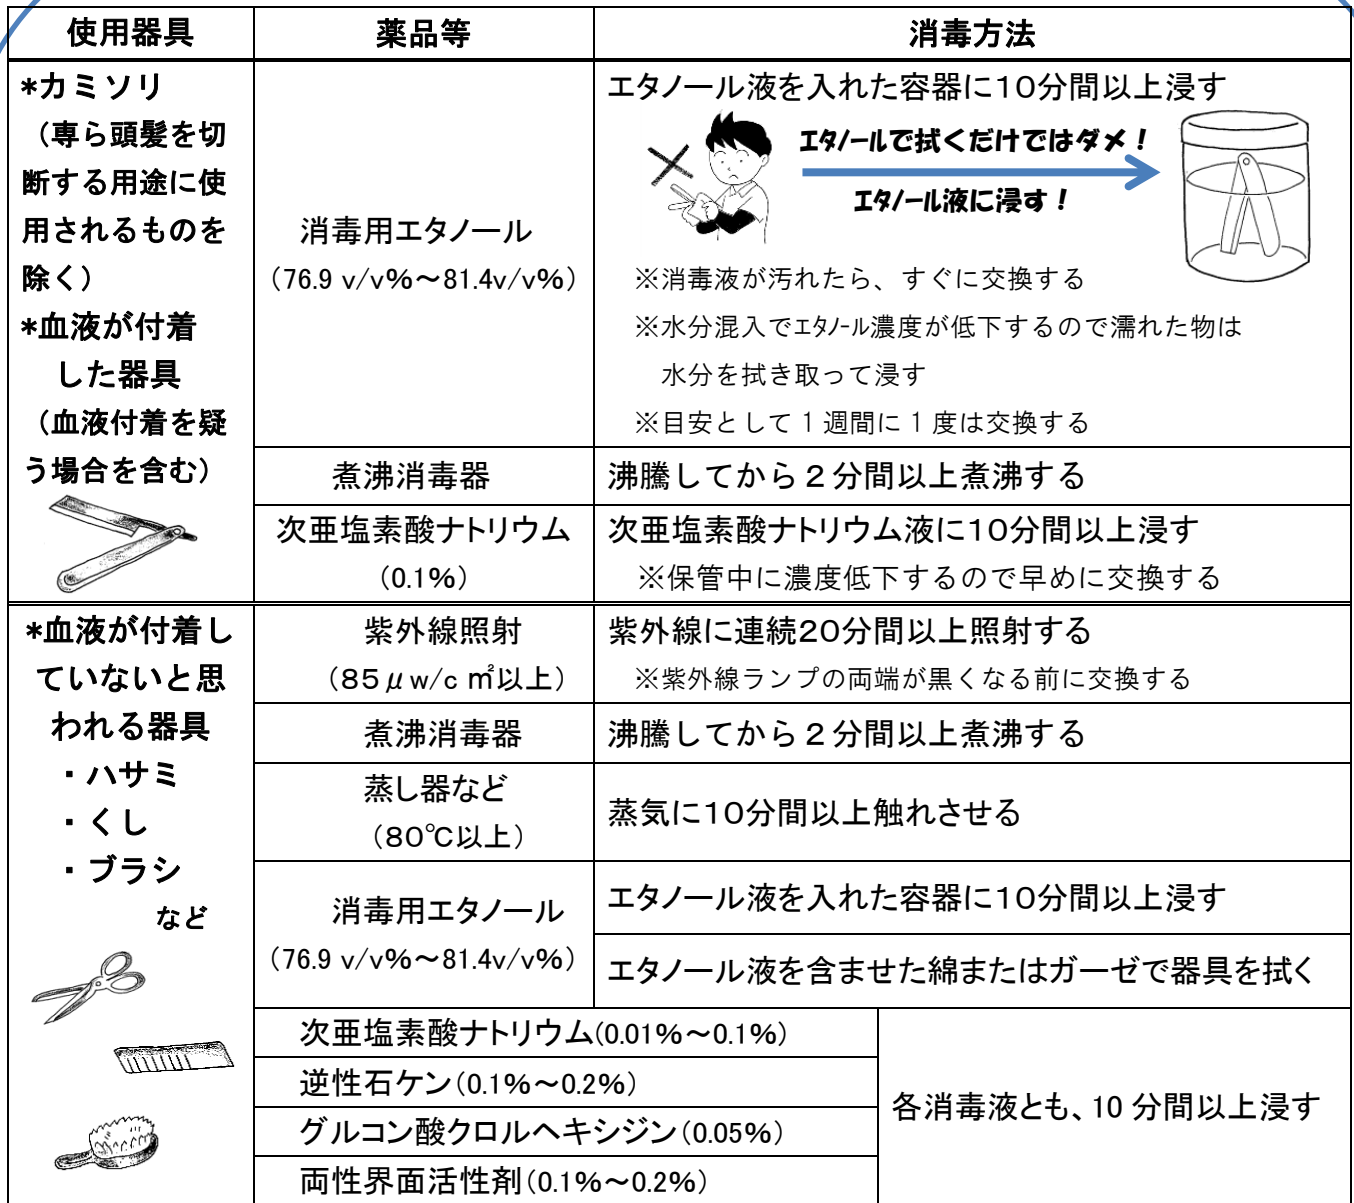 使用器具
薬品等
消毒方法
*カミソリ
（専ら頭髪を切
断する用途に使
用されるものを
除く）
*血液が付着
した器具
（血液付着を疑
う場合を含む）
消毒用エタノール
（76.9 v/v%～81.4v/v%）
エタノール液を入れた容器に10分間以上浸す
エタノールで拭くだけではダメ！
エタノール液に浸す！
※消毒液が汚れたら、すぐに交換する
※水分混入でエタノール濃度が低下するので濡れた物は
水分を拭き取って浸す
※目安として１週間に１度は交換する
煮沸消毒器
沸騰してから２分間以上煮沸する
次亜塩素酸ナトリウム
（0.1%）
次亜塩素酸ナトリウム液に10分間以上浸す
※保管中に濃度低下するので早めに交換する
*血液が付着し
ていないと思
われる器具
・ハサミ
・くし
・ブラシ
など
紫外線照射
（85μw/c㎡以上）
紫外線に連続20分間以上照射する
※紫外線ランプの両端が黒くなる前に交換する
煮沸消毒器
沸騰してから２分間以上煮沸する
蒸し器など
（80℃以上）
蒸気に10分間以上触れさせる
消毒用エタノール
（76.9 v/v%～81.4v/v%）
エタノール液を入れた容器に10分間以上浸す
エタノール液を含ませた綿またはガーゼで器具を拭く
次亜塩素酸ナトリウム(0.01%～0.1%)
逆性石ケン（0.1%～0.2%）
グルコン酸クロルヘキシジン（0.05%）
両性界面活性剤（0.1%～0.2%）
各消毒液とも、10 分間以上浸す